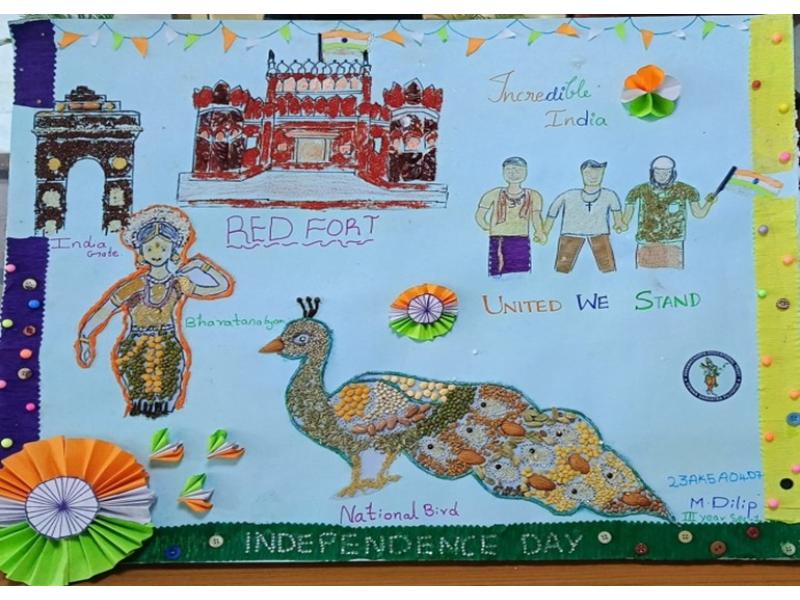 Incredible
India
RED FORT
India
Gate
Bharatanatyam
UNITED WE STAND
23AK5A0407
M. Dilip
III year
National Bird
INDEPENDENCE DAY